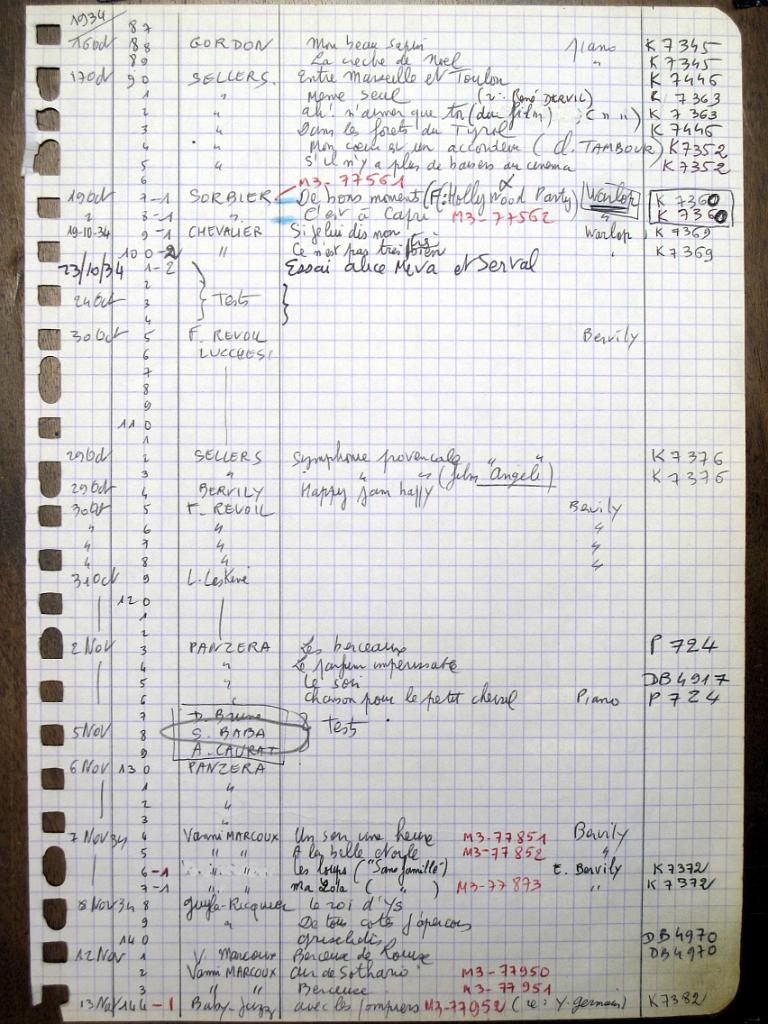 1934
87
16 Oct 88 GORDON Mon beau sapin Piano K 7345
89 La creche de Noel " K 7345
17 Oct 90 SELLERS. Entre Marseille et Toulon K 7446
1 " Meme seul (r: René DERVIL) K 7363
2 " ah! n'aimer que toi (du film) (" ") K 7363
3 " Dans les forets du Tyrol K 7446
4 " Mon coeur est un accordeon (d. TAMBOUR) K7352
5 " S'il n'y a plus de baisers au cinema K 7352
6 M3-77561
19 Oct 7-1 SORBIER De bons moments (F: Hollywood Party) Warlop K 7360
2 8-1 " C'est à Capri M3-77562 " K 7360
19-10-34 9-1 CHEVALIER Si je lui dis non Warlop K 7369
100-2 " Ce n'est pas tres K 7369
23/10/34 1-2 Essai alice Meva et Serval
2
24 Oct 3 Tests
4
30 Oct 5 F. REVOIL Bervily
6 LUCCHESI
7
8
9
110
1
29 Oct 2 SELLERS Symphonie provencale K 7376
3 " " " (film "Angele") K 7376
29 Oct 4 BERVILY Happy jam happy
30 Oct 5 F. REVOIL Bervily
" 6 " "
" 7 " "
" 8 " "
31 Oct 9 L. Leskiné
120
1
2
2 Nov 3 PANZERA Les berceaux P 724
4 " Le parfum imperissable
5 " Le soir DB 4917
6 " Chanson pour le petit cheval Piano P 724
7 D. Brune
5 Nov 8 S. BABA Tests
9 A. CAURAT
6 Nov 130 PANZERA
1 "
2 "
3 "
7 Nov 34 4 Vanni MARCOUX Un soir une heure M3-77851 Bervily
5 " " A la belle etoile M3-77852 "
6-1 " " Les loups ("Sans famille") E. Bervily K 7372
7-1 " " Ma Lola ( " ) M3-77873 " K 7372
8 Nov 34 8 Guyla-Ricquier Le roi d'Ys
9 " De tous cotés j'apercois
140 griselidis DB 4970
12 Nov 1 V. Marcoux Berceuse de Louise DB 4970
2 Vanni MARCOUX air de Sothario M3-77950
3 " " Berceuse M3-77951
13 Nov 144-1 Baby-Jazz avec les pompiers M3-77952 (re: Y. germain) K7382